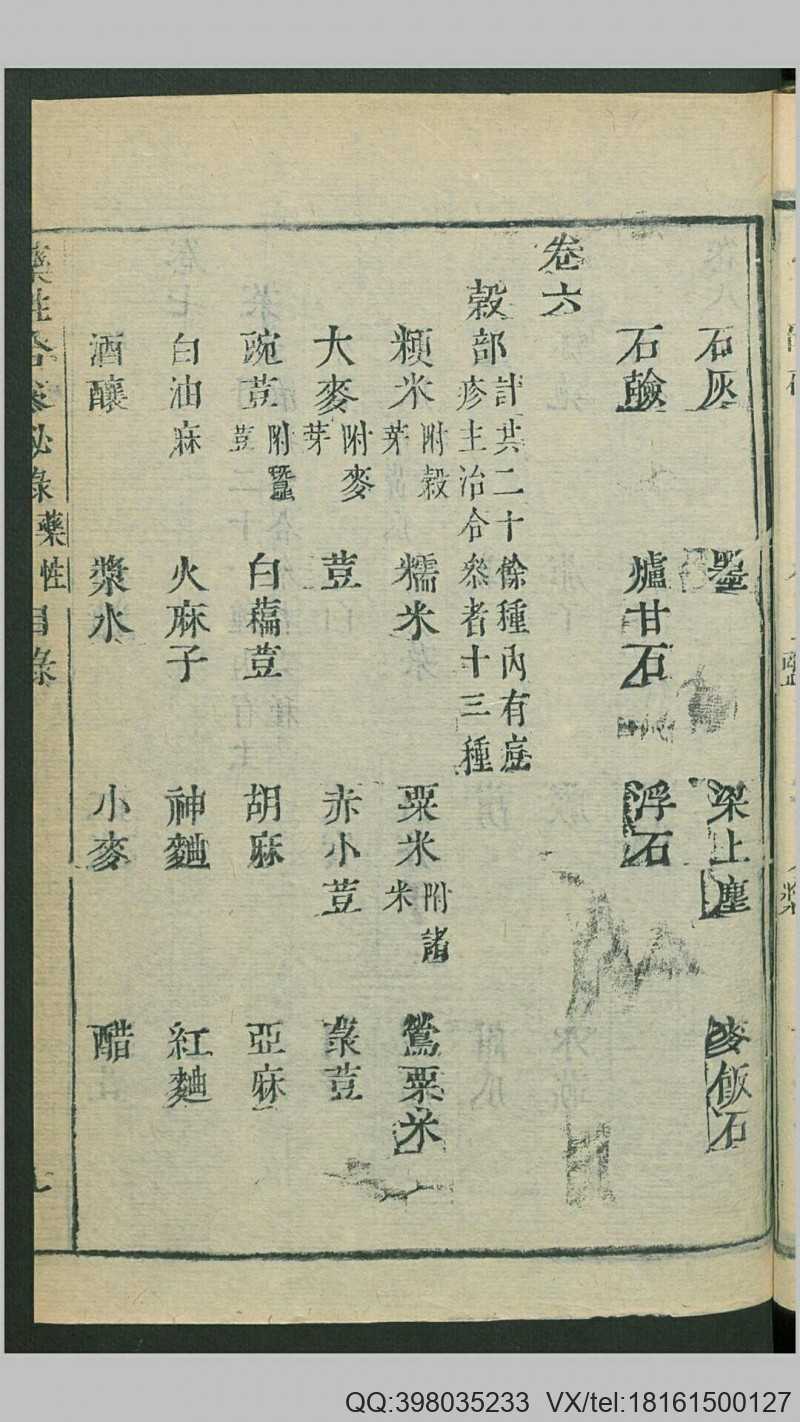 石灰 墨 梁上塵 麥飯石
石鹼 爐甘石 浮石
卷六
穀部 計共二十餘種內有痘疹主治合叅者十三種
粳米 附穀芽 糯米 粟米 附諸米 鶯粟米
大麥 附麥芽 荳 赤小荳 菉荳
豌荳 附蠶荳 白藊荳 胡麻 亞麻
白油麻 火麻子 神麯 紅麯
酒釀 漿水 小麥 醋
藥性合叅秘錄 藥性目錄
QQ:398035233 VX/tel:18161500127